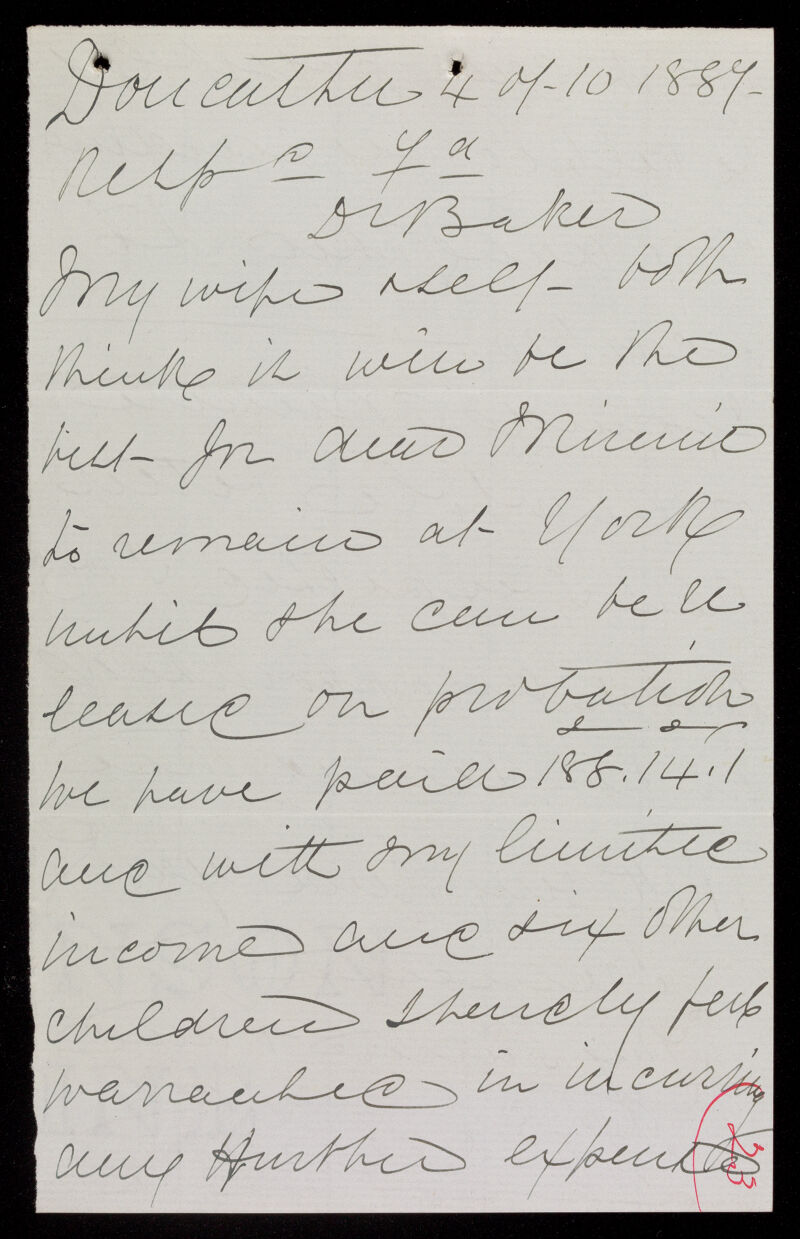 Doncaster 4 of-10 1887-
Resp^d F^d
Dr Baker
My wife & self - both
think it will be the
best - for dear Minnie
to remain at York
until she can be re
leased on probation
we have paid 188.14.1
and with my limited
income and six other
children I hardly feel
warranted in incurring
any further expense
23